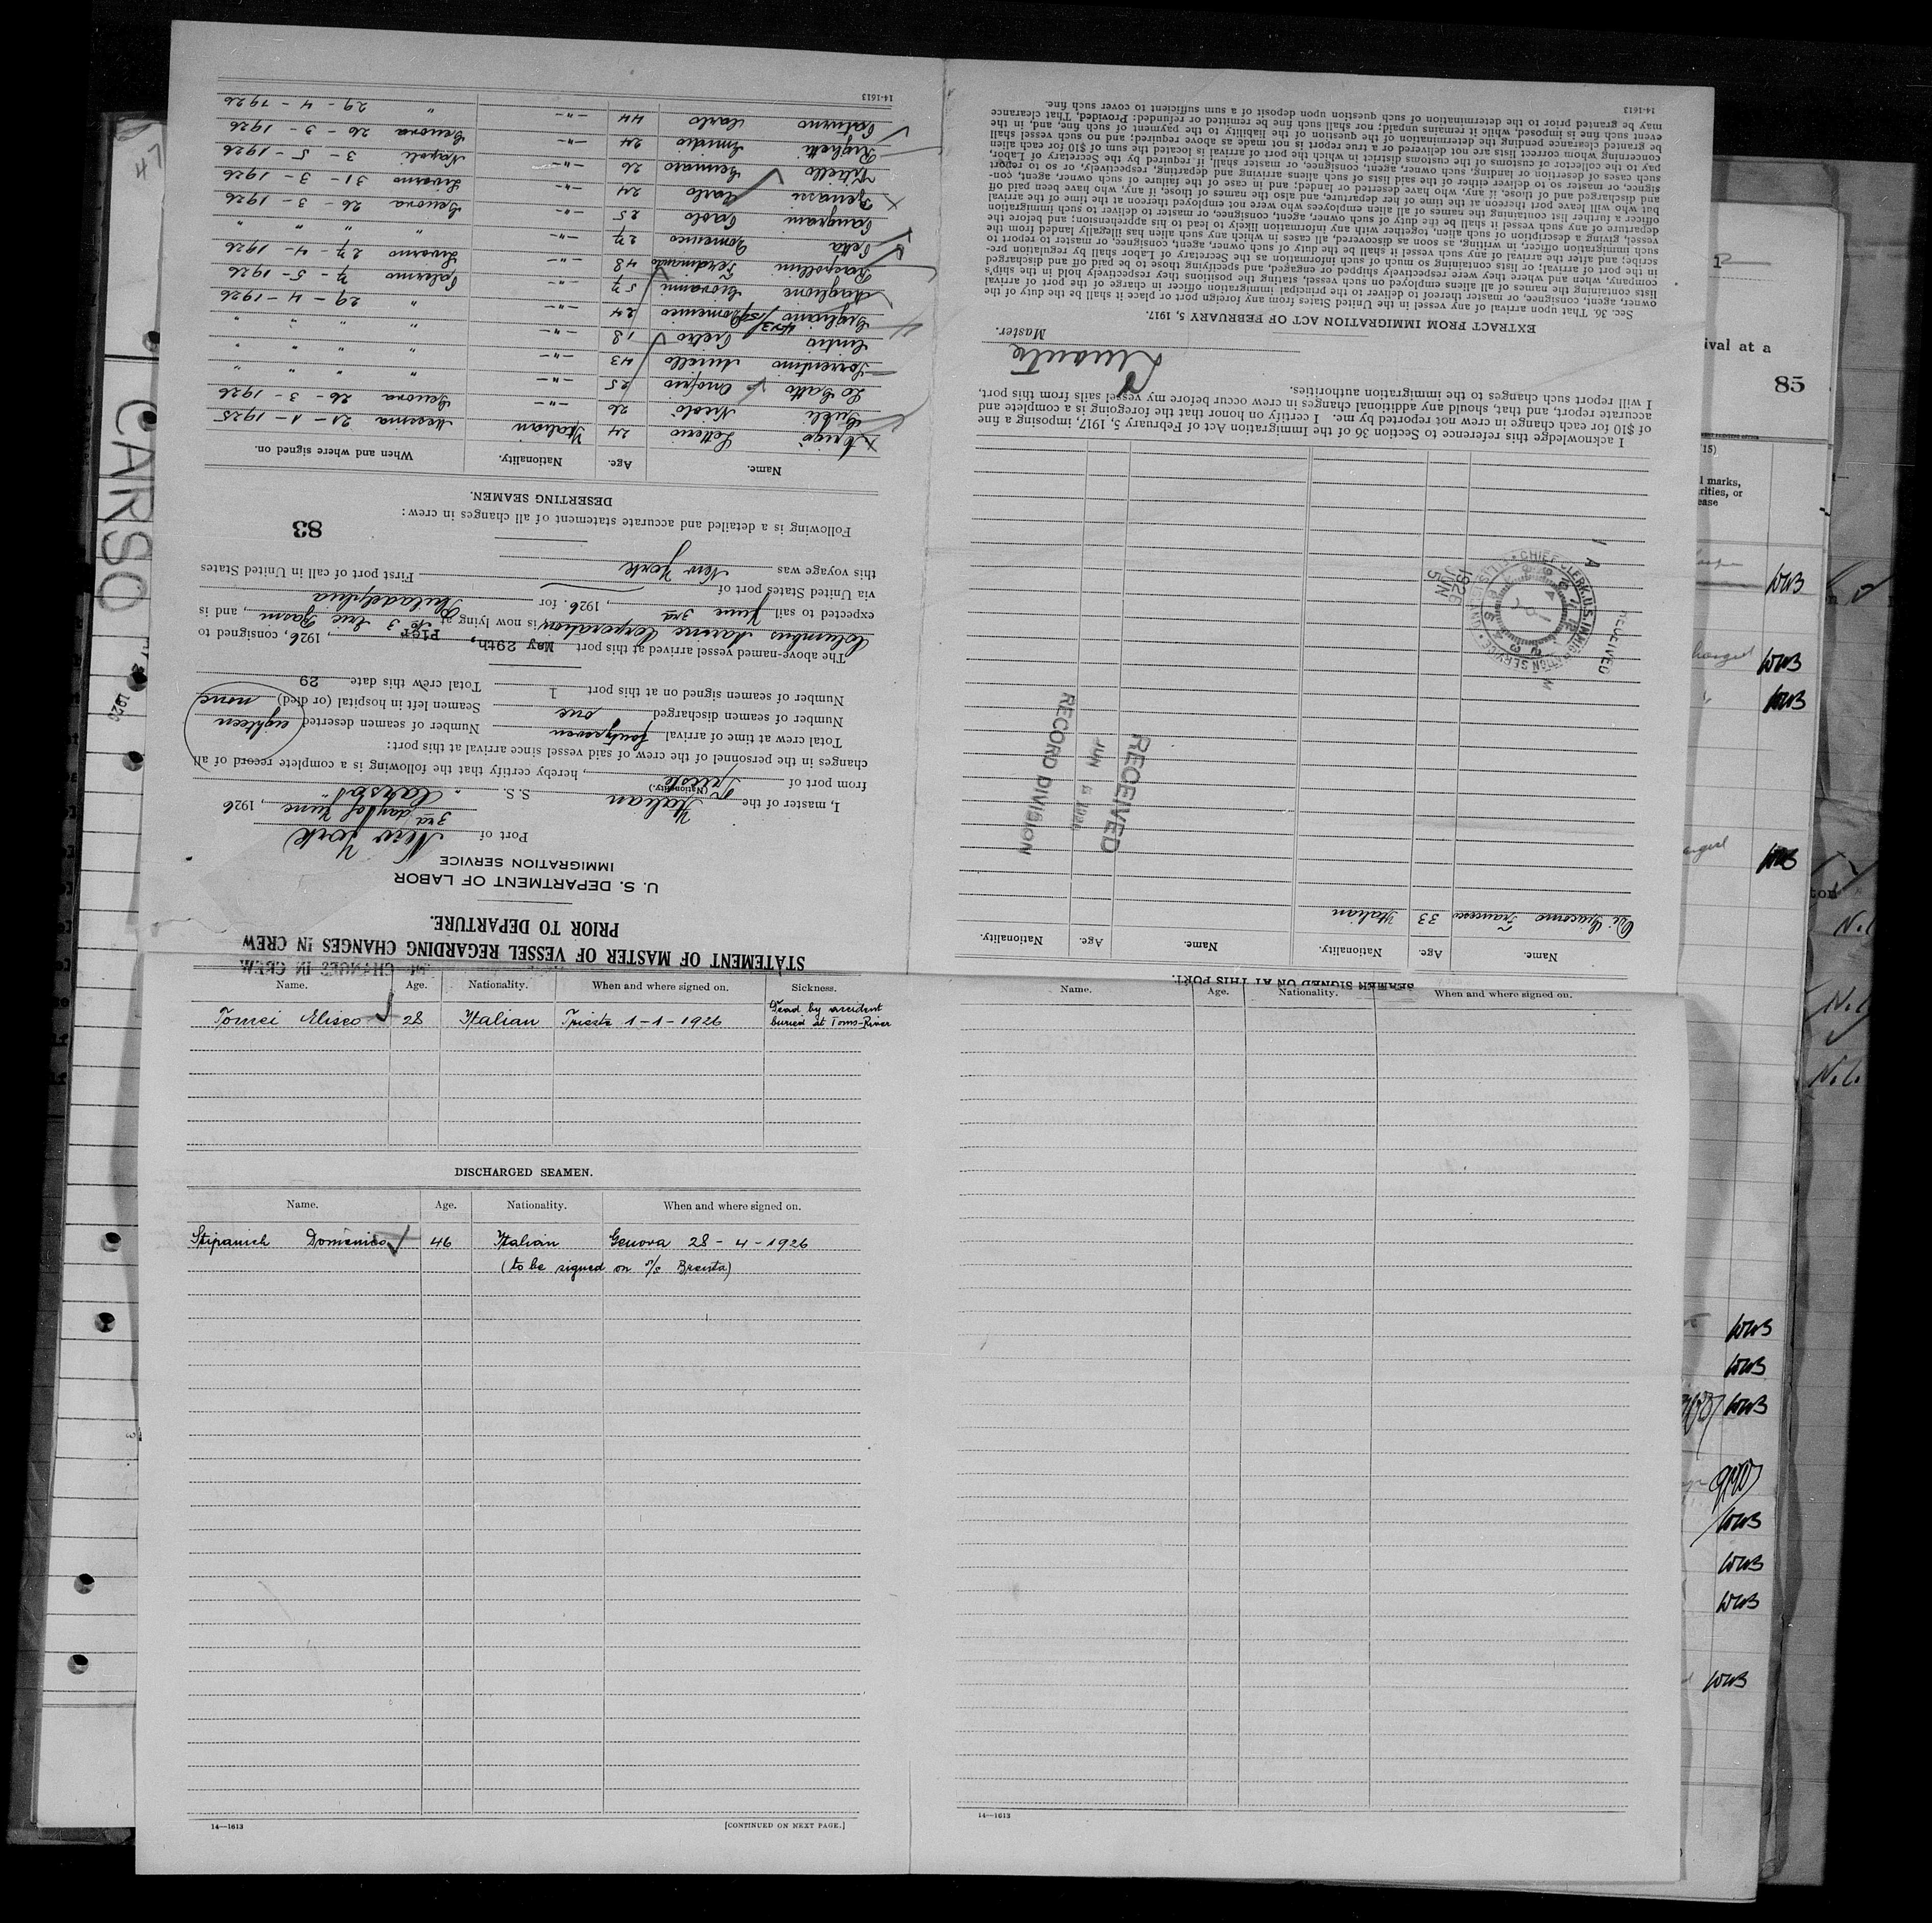 STATEMENT OF MASTER OF VESSEL REGARDING CHANGES IN CREW
PRIOR TO DEPARTURE.
U. S. DEPARTMENT OF LABOR
IMMIGRATION SERVICE
Port of New York
3rd day of June, 1926
I, master of the Italian S.S. "Carso"
(Nationality.)
from port of Trieste, hereby certify that the following is a complete record of all
changes in the personnel of the crew of said vessel since arrival at this port:
Total crew at time of arrival fortyseven Number of seamen deserted eighteen
Number of seamen discharged one Seamen left in hospital (or died) none
Number of seamen signed on at this port 1 Total crew this date 29
The above-named vessel arrived at this port May 29th, 1926, consigned to
Columbus Marine Corporation, is now lying at Pier No 3 Erie Basin, and is
expected to sail June 3rd, 1926. for Philadelphia
via United States port of
this voyage was New York First port of call in United States
83
Following is a detailed and accurate statement of all changes in crew:
DESERTING SEAMEN.
Name. Age. Nationality. When and where signed on.
Letterio 24 Italian Messina 21 - 1 - 1925
Nicolò 26 -"- Genova 26 - 3 - 1926
Lo Gatto Onofrio 25 -"- " " "
Sorrentino Aniello 43 -"- " " "
Pietro 18 -"- " " "
Giugliano Domenico 24 -"- " 29 - 4 - 1926
Maglione Giovanni 57 -"- Palermo 7 - 5 - 1926
Ferdinando 48 -"- Livorno 27 - 4 - 1926
Petta Domenico 27 -"- " " "
Paolo 25 -"- Genova 26 - 3 - 1926
Carlo 24 -"- Livorno 31 - 3 - 1926
Vitiello Gennaro 26 -"- Napoli 3 - 5 - 1926
Righetti Emidio 24 -"- Genova 26 - 3 - 1926
Carlo 44 -"- " 29 - 4 - 1926
14-1613
Name. Age. Nationality. When and where signed on. Sickness.
Tomei Eliseo 28 Italian Trieste 1-1-1926 Dead by accident
buried at Toms-River
DISCHARGED SEAMEN.
Name. Age. Nationality. When and where signed on.
Stipanich Domenico 46 Italian Genova 28 - 4 - 1926
(to be signed on s/s Brenta)
14—1613
[CONTINUED ON NEXT PAGE.]
Name. Age. Nationality. When and where signed on.
14—1613
SEAMEN SIGNED ON AT THIS PORT.
Name. Age. Nationality. Name. Age. Nationality.
Di Giacomo Francesco 33 Italian
RECEIVED
JUN 5 1926
RECORD DIVISION
RECEIVED
CHIEF CLERK, U.S. IMMIGRATION SERVICE
1926
JUN
5
I acknowledge this reference to Section 36 of the Immigration Act of February 5, 1917, imposing a fine
of $10 for each change in crew not reported by me. I certify on honor that the foregoing is a complete and
accurate report, and that, should any additional changes in crew occur before my vessel sails from this port,
I will report such changes to the immigration authorities.
Master.
EXTRACT FROM IMMIGRATION ACT OF FEBRUARY 5, 1917.
Sec. 36. That upon arrival of any vessel in the United States from any foreign port or place it shall be the duty of the
owner, agent, consignee, or master thereof to deliver to the principal immigration officer in charge of the port of arrival
lists containing the names of all aliens employed on such vessel, stating the positions they respectively hold in the ship's
company, when and where they were respectively shipped or engaged, and specifying those to be paid off and discharged
in the port of arrival; or lists containing so much of such information as the Secretary of Labor shall by regulation pre-
scribe; and after the arrival of any such vessel it shall be the duty of such owner, agent, consignee, or master to report to
such immigration officer, in writing, as soon as discovered, all cases in which any such alien has illegally landed from the
vessel, giving a description of such alien, together with any information likely to lead to his apprehension; and before the
departure of any such vessel it shall be the duty of such owner, agent, consignee, or master to deliver to such immigration
officer a further list containing the names of all alien employees who were not employed thereon at the time of the arrival
but who will leave port thereon at the time of her departure, and also the names of those, if any, who have been paid off
and discharged and of those, if any, who have deserted or landed; and in case of the failure of such owner, agent, con-
signee, or master so to deliver either of the said lists of such aliens arriving and departing, respectively, or so to report
such cases of desertion or landing, such owner, agent, consignee, or master shall, if required by the Secretary of Labor,
pay to the collector of customs of the customs district in which the port of arrival is located the sum of $10 for each alien
concerning whom correct lists are not delivered or a true report is not made as above required; and no such vessel shall
be granted clearance pending the determination of the question of the liability to the payment of such fine, and, in the
event such fine is imposed, while it remains unpaid; nor shall such fine be remitted or refunded: Provided, That clearance
may be granted prior to the determination of such question upon deposit of a sum sufficient to cover such fine.
14-1613
47
CARSO
1926
ival at a
85
15)
l marks,
rities, or
ease
WWB
WWB
WWB
WWB
WWB
WWB
WWB
WWB
WWB
WWB
WWB
ton
N.l.
N.l.
N.l.